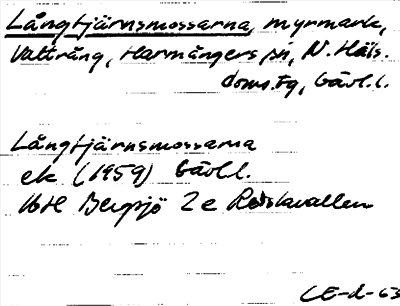 Långtjärnsmossarna, myrmark,
Vattrång, Harmångers sn, N. Häls.
doms.fg, Gävl.l.
Långtjärnsmossarna
ek (1959) Gävl.l.
16H Bergsjö 2e
CE-d-63